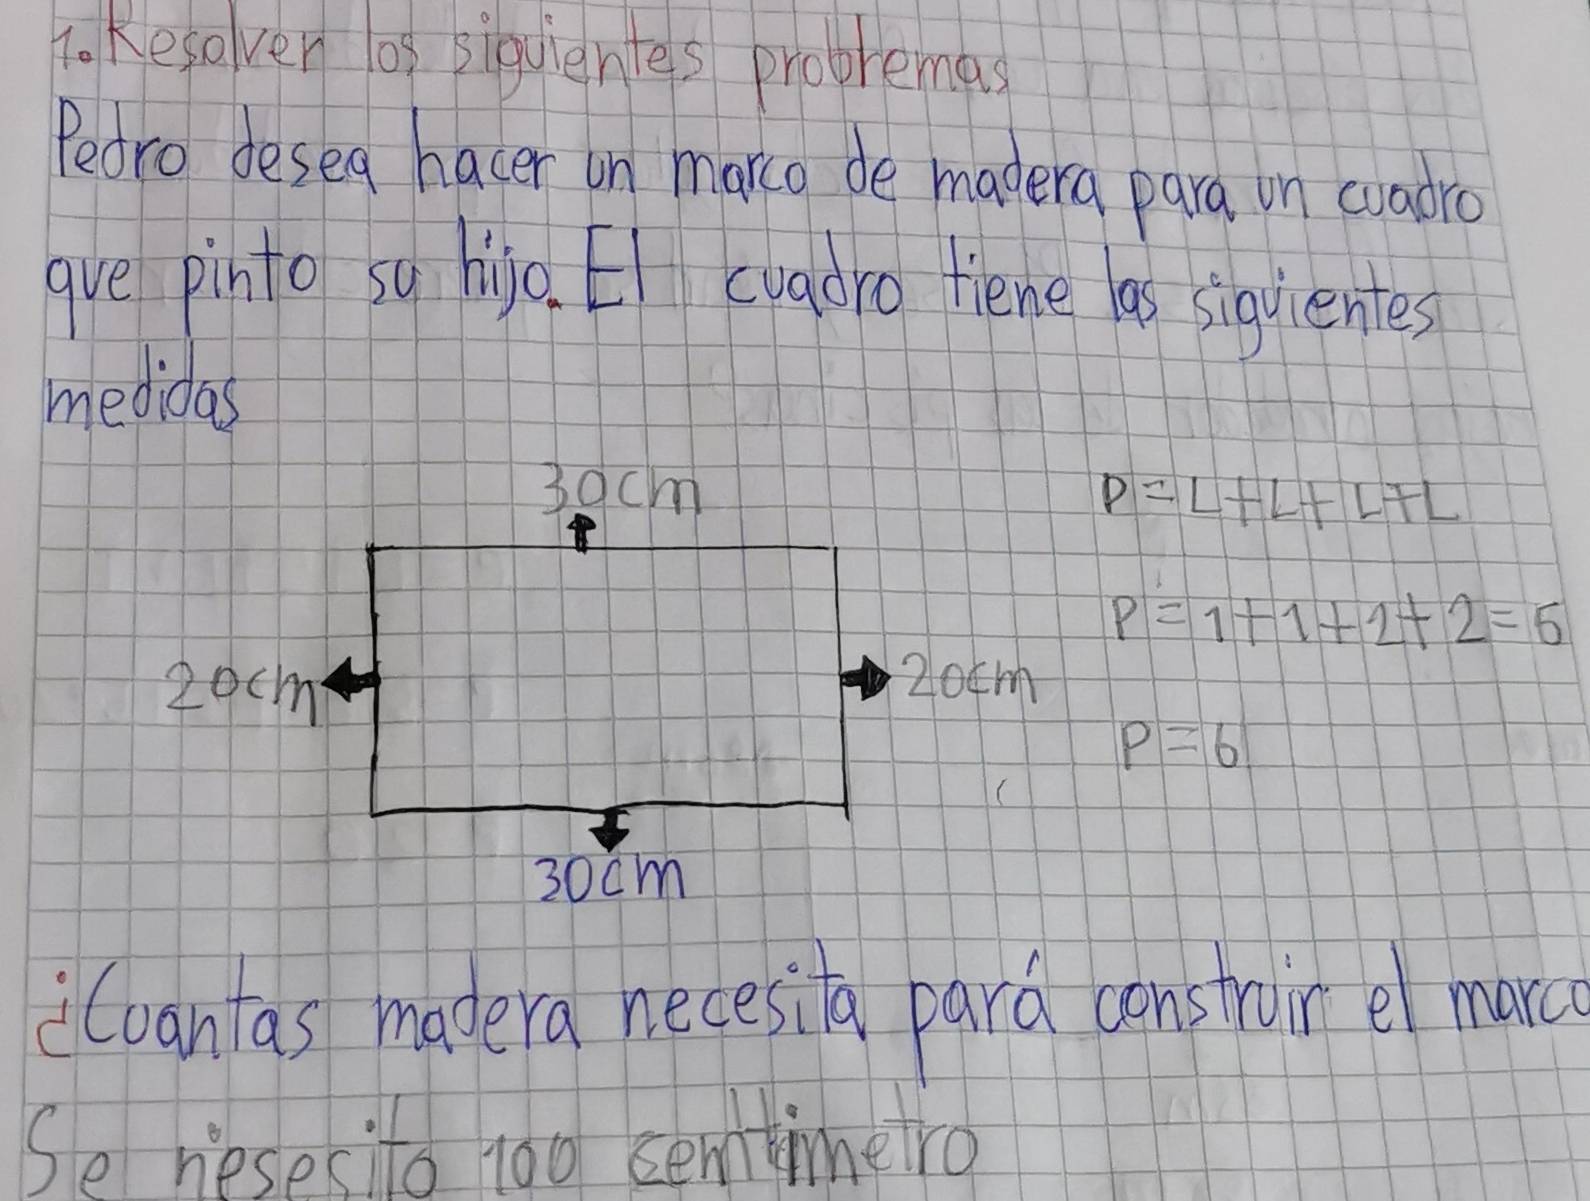 1. Resolver los siguientes problemas
Pedro desea hacer un marco de madera para un cuadro
que pinto su hijo. El cuadro tiene las siguientes
medidas
30cm
P=L+L+L+L
P=1+1+2+2=6
20cm
20cm
P=6
30cm
¿Cuantas madera necesita pará construir el marco
Se nesesito 100 sentimetro